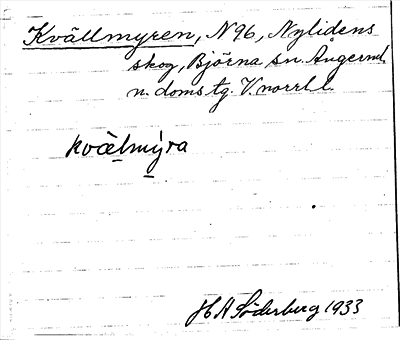 Kvällmyren, N 96, Nylidens
skog, Björna sn. Ångerml.
n. doms tg. V. norrl. l.
kvälmy̱ra
H A Söderberg 1933